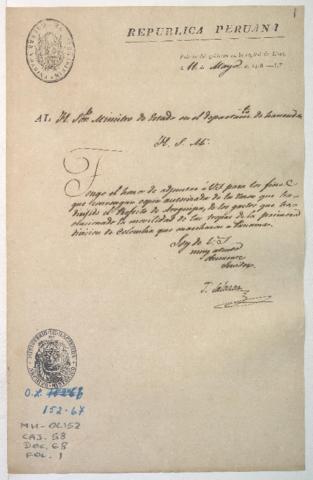 1
REPUBLICA PERUANA
Palacio del gobierno en la capital de Lima,
á 11 de Mayo de 182 -7
AL H. Sor. Ministro de Estado en el departamto. de hacienda
H. S. M.
Tengo el honor de adjuntar á VS para los fines
que convengan copia autorizada de la razon que ha
pasado el Prefecto de Arequipa, de los gastos que ha
ocasionado la movilidad de las tropas de la primera
division de Colombia que marcharon a Panamá.
Soy de V.S
muy atento
Servidor
T. Salazar
O.L.
152-67
MH-OL152
CAJ. 58
DOC. 68
FOL. 1